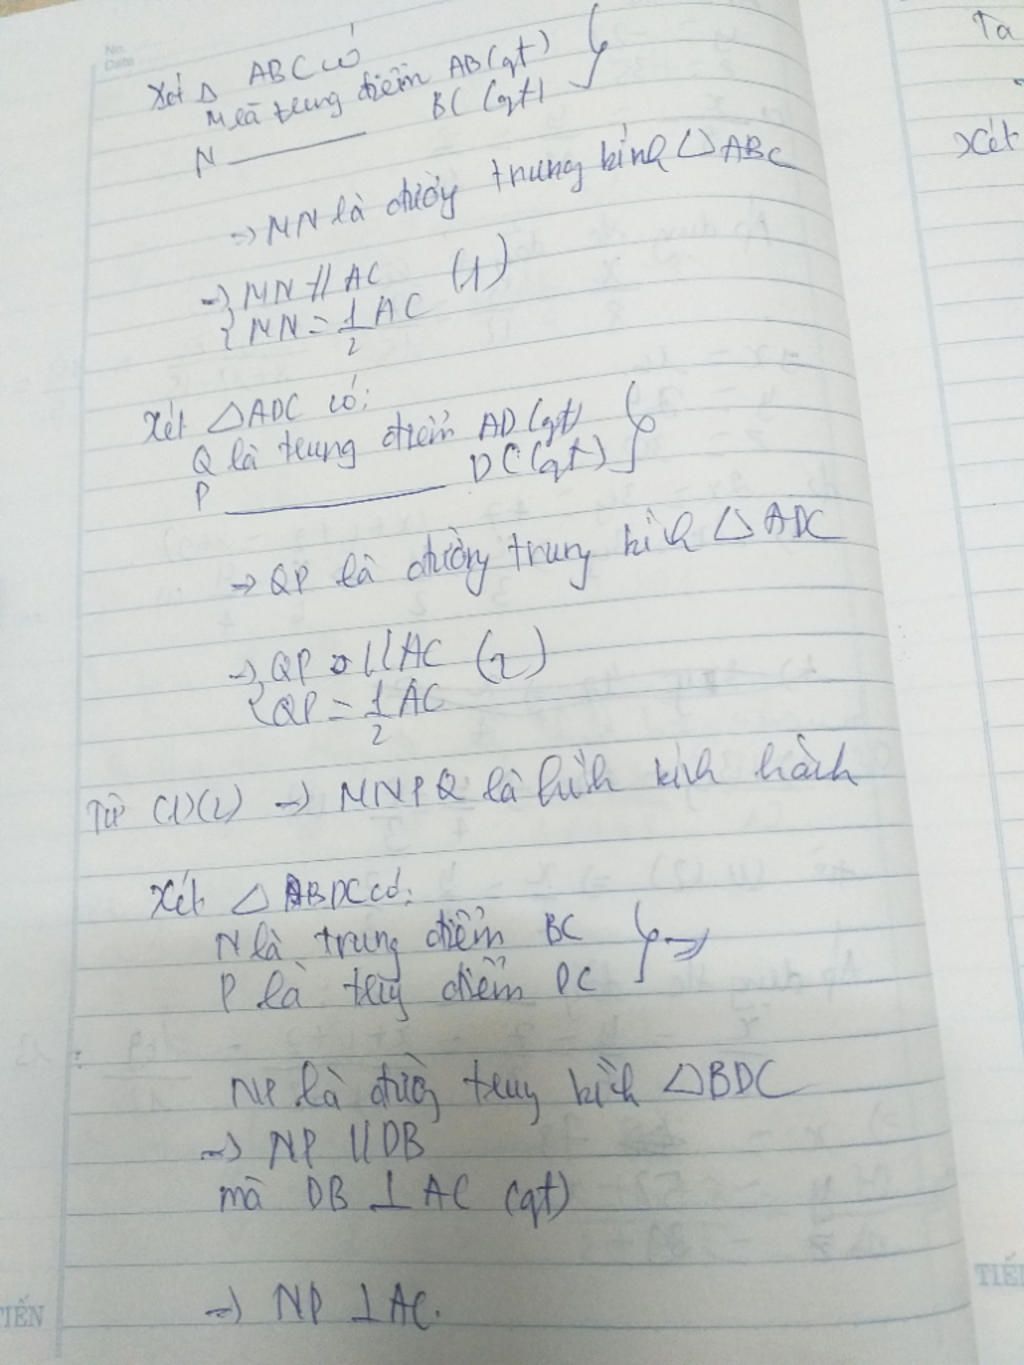 No.
Date
Xét △ ABC có
M là trung điểm AB (gt)
N ——— BC (gt)
→ MN là đường trung bình △ABC
→ MN // AC (1)
MN = 1/2 AC
Xét △ADC có:
Q là trung điểm AD (gt)
P ——— DC (gt)
→ QP là đường trung bình △ ADC
→ QP // AC (2)
QP = 1/2 AC
Từ (1)(2) → MNPQ là hình bình hành
Xét △ BDC có:
N là trung điểm BC
P là trung điểm DC
⇒
NP là đường trung bình △BDC
→ NP // DB
mà DB ⊥ AC (gt)
→ NP ⊥ AC.
Ta
Xét
TIẾN
TIẾ